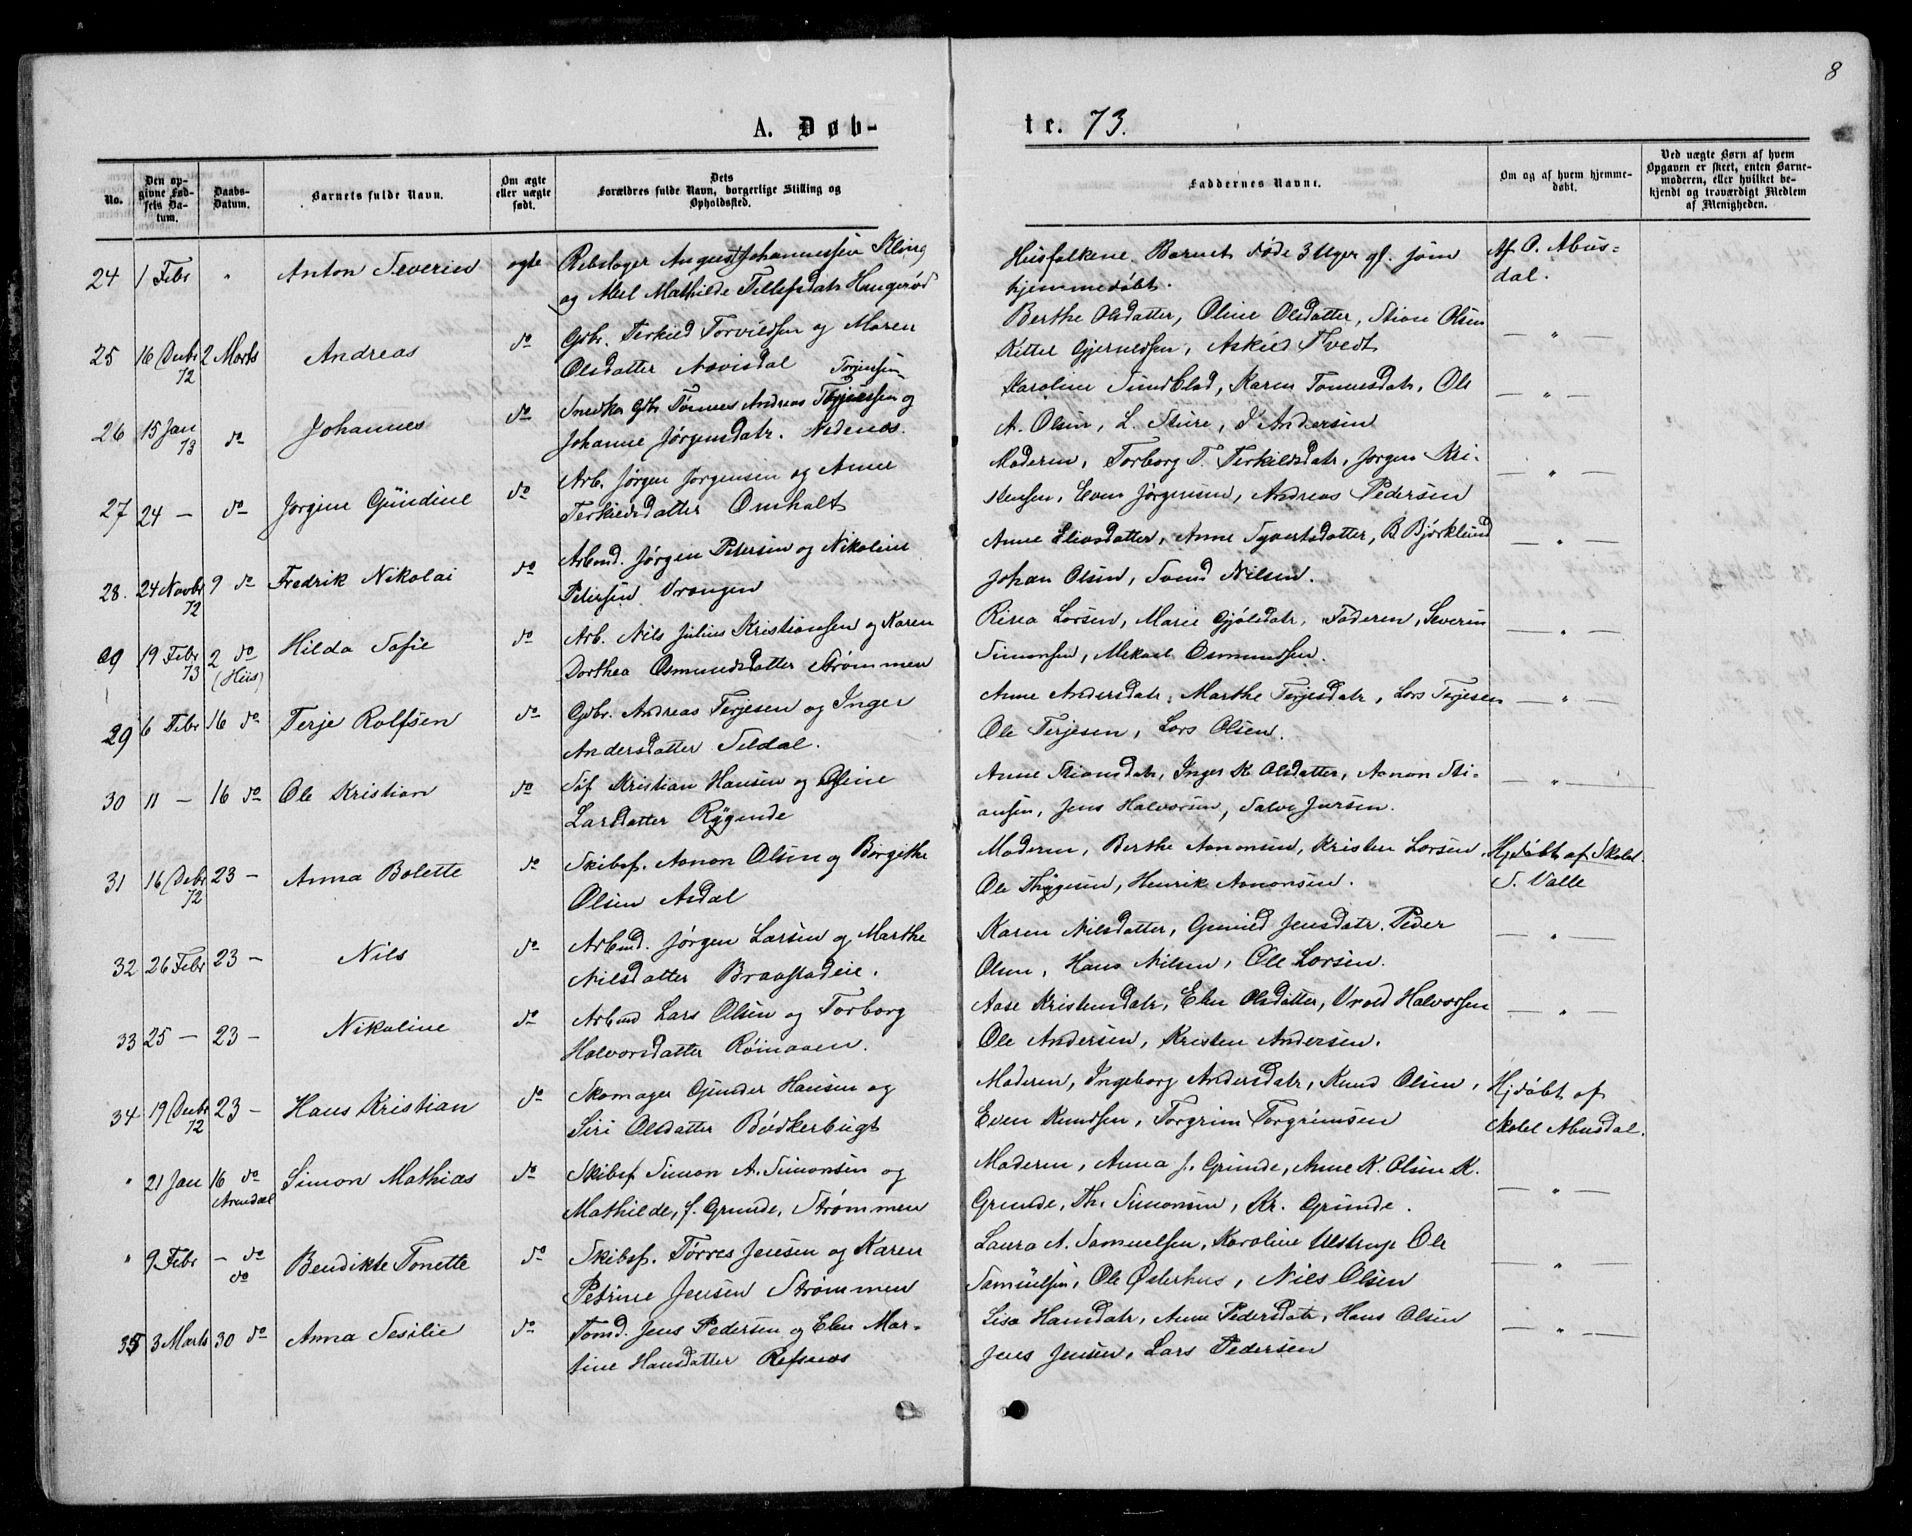 8
A. Døb-
te. 73.
No.
Den op-
givne Fød-
sels Da-
tum.
Daabs-
Datum.
Barnets fulde Navn.
Om ægte
eller uægte
født.
Dets
Forældres fulde Navn, borgerlige Stilling og
Opholdssted.
Faddernes Navne.
Om og af hvem hjemme-
døbt.
Ved uægte Børn af hvem
Opgaven er skeet, enten Barne-
moderen, eller hvilket be-
kjendt og troværdigt Medlem
af Menigheden.
24 1 Febr " Anton Severin ægte Rebslager August Johannessen Kling
og Abel Mathilde Tellefsdatr Haugerød
Husfolkene, Barnet døde 3 Uger gl. som
hjemmedøbt.
Af O. Abus-
dal.
25 16 Decbr 72 2 Marts Andreas do Gdbr. Terkild Torvildsen og Maren
Olsdatter Nævisdal
Berthe Olsdatter, Oline Olsdatter, Stian Olsen
Kittel Gjeruldsen, Askild Tvedt
— " —
26 15 Jan 73 do Johannes do Snedker Gdbr Tønnes Andreas Terjesen og
Johanne Jørgensdatr. Nedenæs.
Karoline Sundblad, Karen Tønnesdatr, Ole
A. Olsen, L. Sture, J. Andersen
— " —
27 24 — do Jørgine Gundine do Arb. Jørgen Jørgensen og Anne
Terkildsdatter Omholt
Moderen, Torborg T. Terkildsdatr, Jørgen Kri-
stensen, Even Jørgensen, Andreas Pedersen
— " —
28. 24 Novbr 72 9 do Fredrik Nikolai do Arbmd. Jørgen Petersen og Nikoline
Petersen Vrangen
Anne Eliasdatter, Anne Syvertsdatter, B. Bjørklund
Johan Olsen, Svend Nilsen.
— " —
29 19 Febr 73 2 do (Hiis) Hilda Sofie do Arb. Nils Julius Kristiansen og Karen
Dorthea Osmundsdatter Strømmen
Larsen, Marie Gjølsdatr, Faderen, Severin
Simonsen, Mekael Osmundsen.
— " —
29 6 Febr 16 do Terje Rolfsen do Gdbr. Andreas Terjesen og Inger
Andersdatter Seldal.
Anne Andersdatr, Marthe Terjesdatr, Lars Terjesen
Ole Terjesen, Lars Olsen.
— " —
30 11 — 16 do Ole Kristian do Søf Kristian Hansen og Oline
Larsdatter Rygende
Anne Stiansdatr, Inger K. Olsdatter, Aanon Sti-
ansen, Jens Halvorsen, Salve Jursen.
— " —
31 16 Decbr 72 23 — Anna Bolette do Skibsf. Aanon Olsen og Birgithe
Olsen Asdal
Moderen, Berthe Aanonsen, Kristen Larsen,
Ole Thygesen, Henrik Aanonsen.
Hjdøbt af Skolel.
S. Valle
32 26 Febr 23 — Nils do Arbmd. Jørgen Larsen og Marthe
Nilsdatter Braastadeie.
Karen Nilsdatter, Gunild Jensdatr. Peder
Olsen, Hans Nilsen, Ole Larsen.
— " —
33 25 — 23 — Nikoline do Arbmd Lars Olsen og Torborg
Halvorsdatter Rømaaen.
Aase Kristensdatr, Elen Olsdatter, Vrold Halvorsen
Ole Andersen, Kristen Andersen.
— " —
34 19 Decbr 72 23 — Hans Kristian do Skomager Gunder Hansen og
Siri Olsdatter Bødkerbugt
Moderen, Ingeborg Andersdatr, Knud Olsen,
Even Knudsen, Torgrim Torgrimsen
Hjdøbt af
Skolel Abusdal.
" 21 Jan 16 do Arendal Simon Mathias do Skibsf Simon A. Simonsen og
Mathilde, f. Grunde, Strømmen
Moderen, Anna J. Grunde, Anne K. Olsen K.
Grunde, Th. Simonsen, Kr. Grunde.
— " —
" 9 Febr — do do Bendikte Tonette do Skibsf. Tørres Jensen og Karen
Petrine Jensen Strømmen
Laura A. Samuelsen, Karoline Ulstrup Ole
Samuelsen, Ole Østerhus, Nils Olsen
— " —
35 3 Marts 30 do Anna Sesilie do Tømd. Jens Pedersen og Elen Mar-
tine Hansdatter Refsnæs
Lisa Hansdatr, Anne Pedersdatr, Hans Olsen
Jens Jensen, Lars Pedersen
— " —